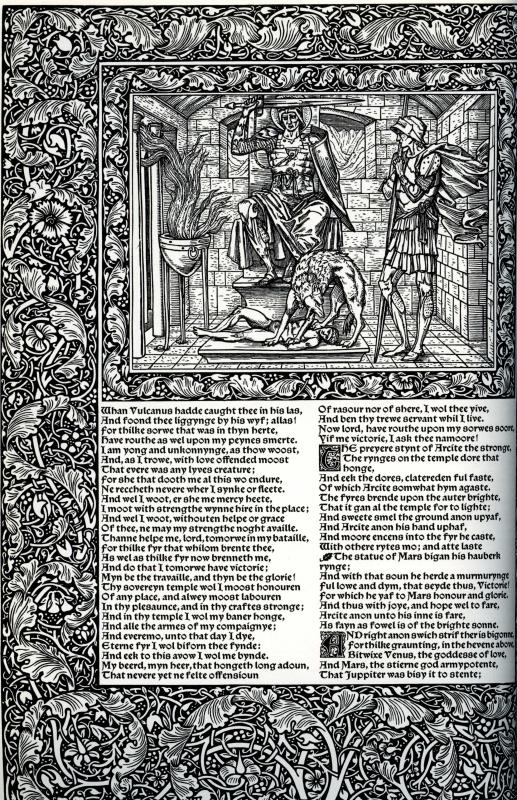 Whan Vulcanus hadde caught thee in his las,
And foond thee liggynge by his wyf; allas!
For thilke sorwe that was in thyn herte,
Have routhe as wel upon my peynes smerte.
I am yong and unkonnynge, as thow woost,
And, as I trowe, with love offended moost
That evere was any lyves creature;
For she that dooth me al this wo endure,
Ne reccheth nevere wher I synke or fleete.
And wel I woot, er she me mercy heete,
I moot with strengthe wynne hire in the place;
And wel I woot, withouten helpe or grace
Of thee, ne may my strengthe noght availle.
Thanne helpe me, lord, tomorwe in my bataille,
For thilke fyr that whilom brente thee,
As wel as thilke fyr now brenneth me,
And do that I tomorwe have victorie;
Myn be the travaille, and thyn be the glorie!
Thy sovereyn temple wol I moost honouren
Of any place, and alwey moost labouren
In thy plesaunce, and in thy craftes stronge;
And in thy temple I wol my baner honge,
And alle the armes of my compaignye;
And everemo, unto that day I dye,
Eterne fyr I wol biforn thee fynde:
And eek to this avow I wol me bynde.
My beerd, myn heer, that hongeth long adoun,
That nevere yet ne felte offensioun
Of rasour nor of shere, I wol thee yive,
And ben thy trewe servant whil I live.
Now lord, have routhe upon my sorwes soore,
Yif me victorie, I ask thee namoore!
THE preyere stynt of Arcite the stronge,
The rynges on the temple dore that
honge,
And eek the dores, clatereden ful faste,
Of which Arcite somwhat hym agaste.
The fyres brende upon the auter brighte,
That it gan al the temple for to lighte;
And sweete smel the ground anon upyaf,
And Arcite anon his hand uphaf,
And moore encens into the fyr he caste,
With othere rytes mo; and atte laste
The statue of Mars bigan his hauberk
rynge;
And with that soun he herde a murmurynge
Ful lowe and dym, that seyde thus, Victorie!
For which he yaf to Mars honour and glorie.
And thus with joye, and hope wel to fare,
Arcite anon unto his inne is fare,
As fayn as fowel is of the brighte sonne.
AND right anon swich strif ther is bigonne,
For thilke graunting, in the hevene above,
Bitwixe Venus, the goddesse of love,
And Mars, the stierne god armypotente,
That Juppiter was bisy it to stente;